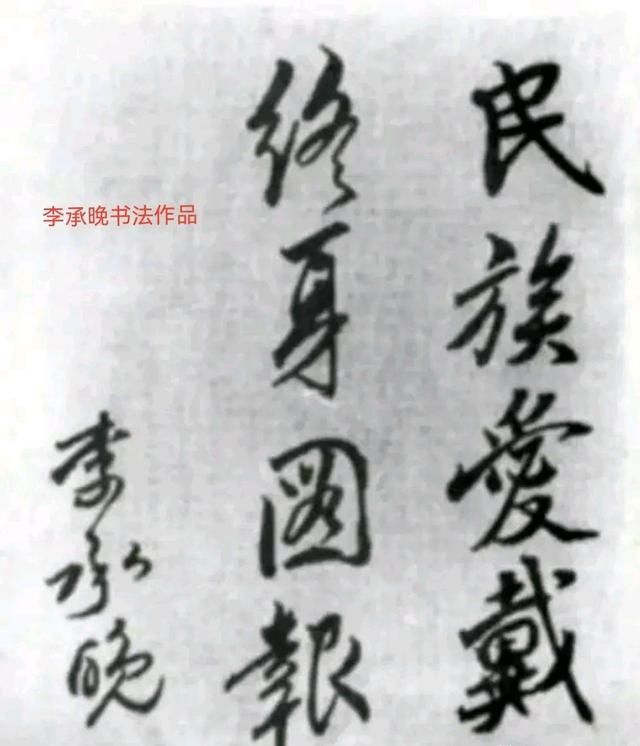 民族愛戴
終身圖報
李承晚
李承晚书法作品